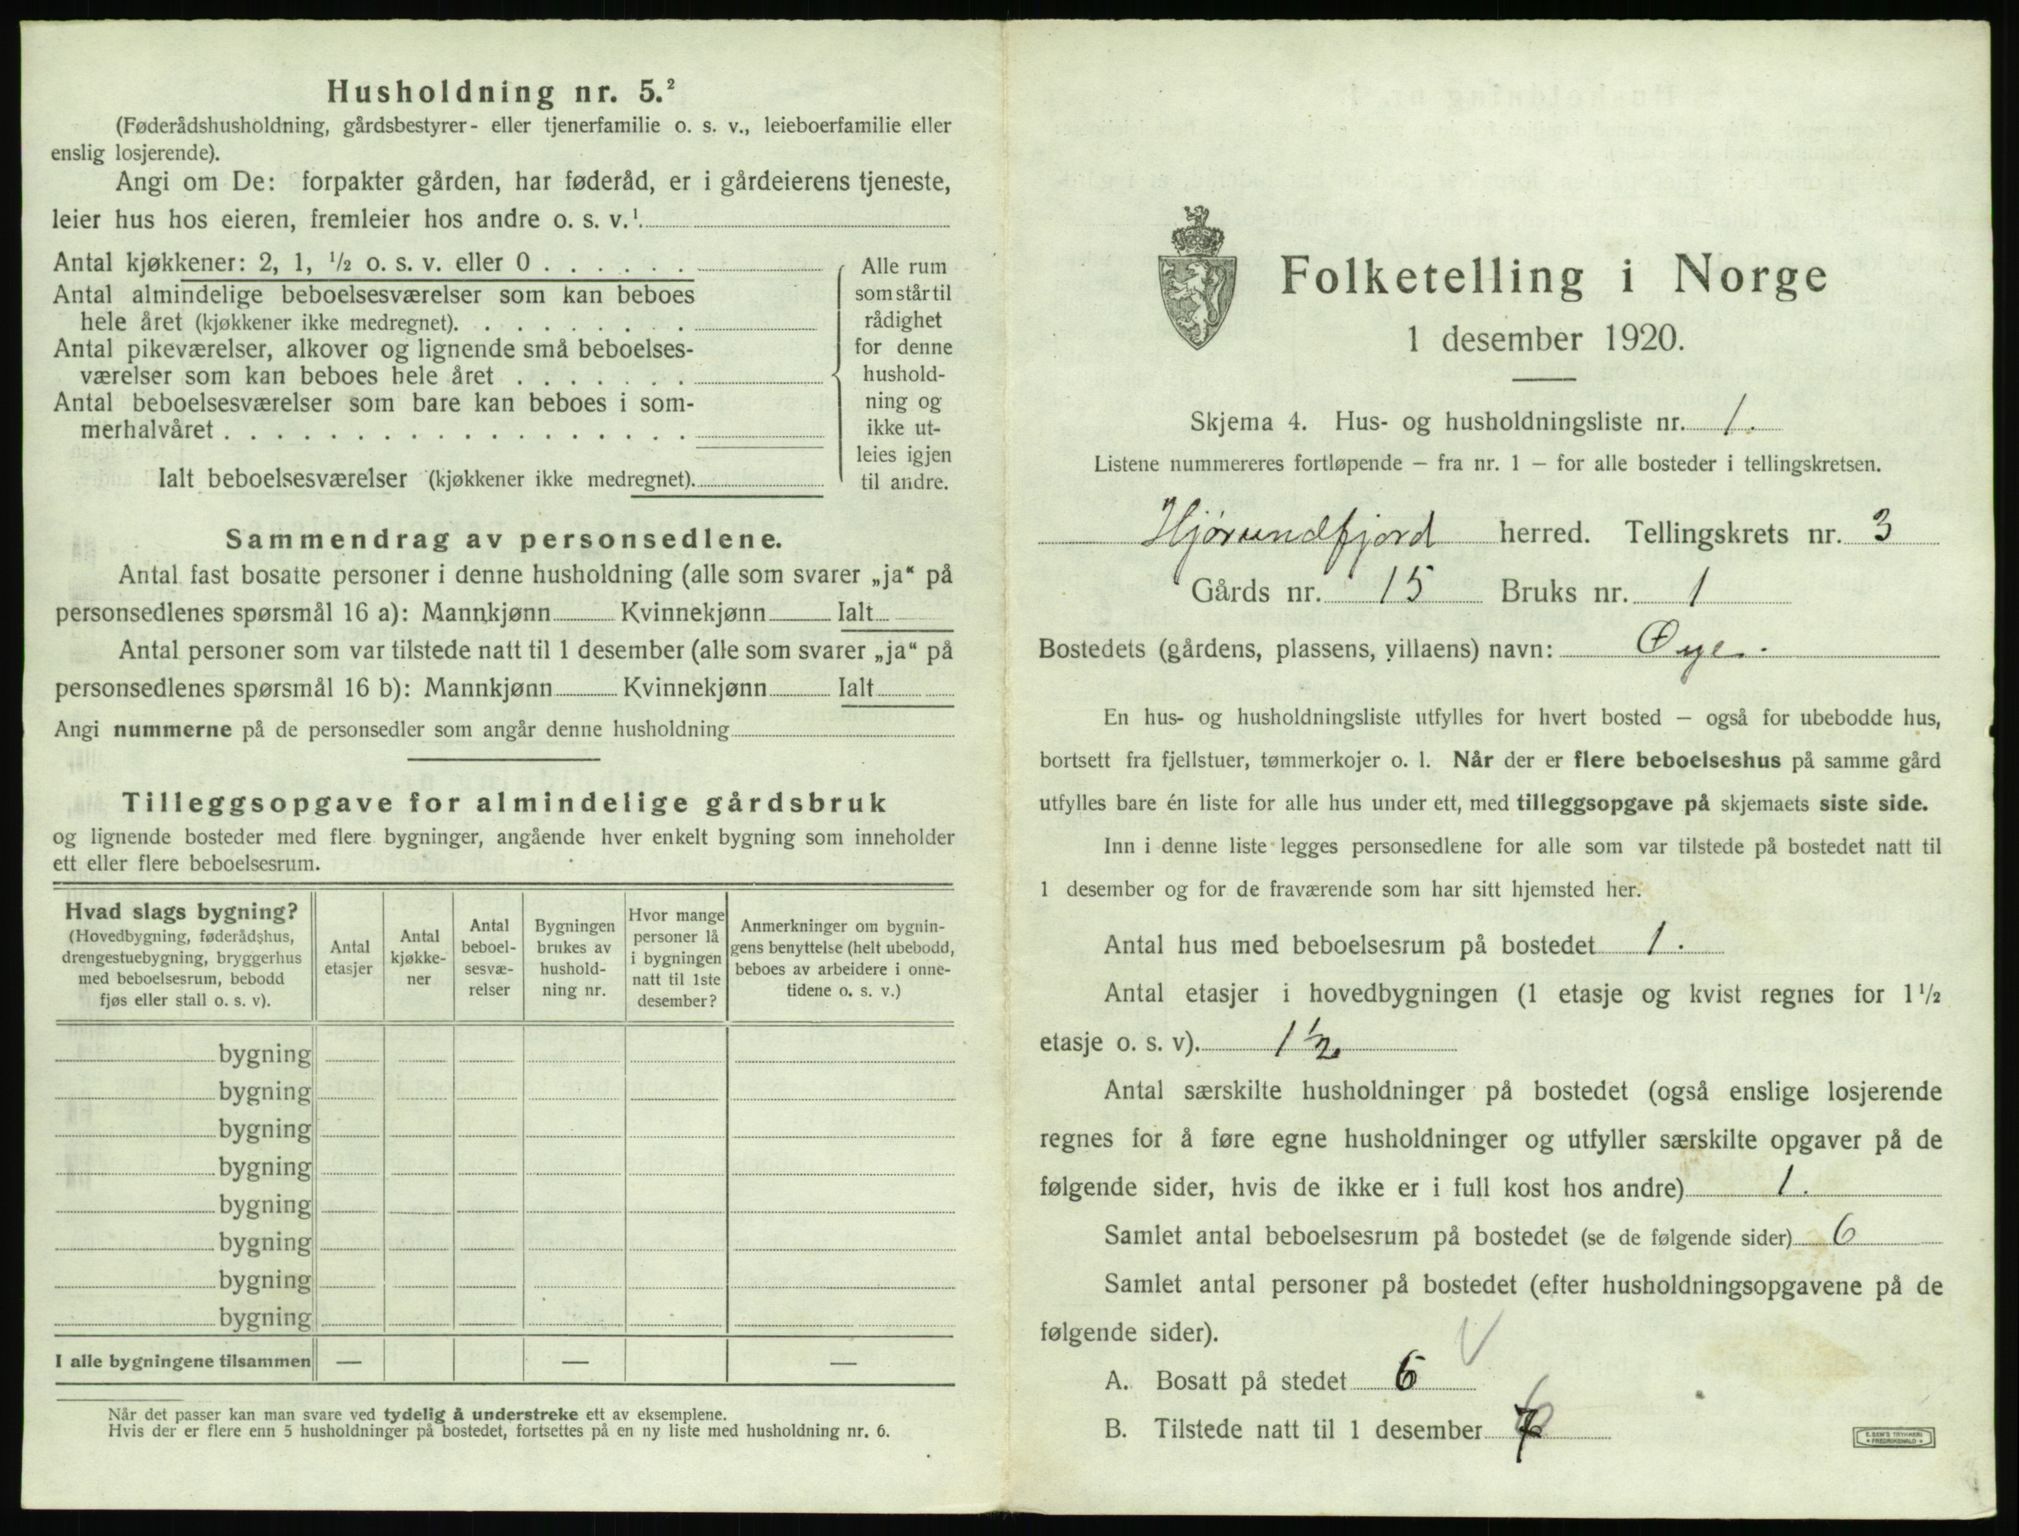 Husholdning nr. 5.²
(Føderådshusholdning, gårdsbestyrer- eller tjenerfamilie o. s. v., leieboerfamilie eller
enslig losjerende).
Angi om De: forpakter gården, har føderåd, er i gårdeierens tjeneste,
leier hus hos eieren, fremleier hos andre o. s. v.¹
Antal kjøkkener: 2, 1, ½ o. s. v. eller 0 . . . . . .
Antal almindelige beboelsesværelser som kan beboes
hele året (kjøkkener ikke medregnet). . . . . . . . .
Antal pikeværelser, alkover og lignende små beboelses-
værelser som kan beboes hele året . . . . . . .
Antal beboelsesværelser som bare kan beboes i som-
merhalvåret . . . . . . . . . . . . . . . . . .
Ialt beboelsesværelser (kjøkkener ikke medregnet).
Alle rum
som står til
rådighet
for denne
hushold-
ning og
ikke ut-
leies igjen
til andre.
Sammendrag av personsedlene.
Antal fast bosatte personer i denne husholdning (alle som svarer „ja“ på
personsedlenes spørsmål 16 a): Mannkjønn Kvinnekjønn Ialt
Antal personer som var tilstede natt til 1 desember (alle som svarer „ja“ på
personsedlenes spørsmål 16 b): Mannkjønn Kvinnekjønn Ialt
Angi nummerne på de personsedler som angår denne husholdning
Tilleggsopgave for almindelige gårdsbruk
og lignende bosteder med flere bygninger, angående hver enkelt bygning som inneholder
ett eller flere beboelsesrum.
Hvad slags bygning?
(Hovedbygning, føderådshus,
drengestuebygning, bryggerhus
med beboelsesrum, bebodd
fjøs eller stall o. s. v).
Antal
etasjer
Antal
kjøkke-
ner
Antal
beboel-
sesvæ-
relser
Bygningen
brukes av
hushold-
ning nr.
Hvor mange
personer lå
i bygningen
natt til 1ste
desember?
Anmerkninger om bygnin-
gens benyttelse (helt ubebodd,
beboes av arbeidere i onne-
tidene o. s. v.)
bygning
bygning
bygning
bygning
bygning
bygning
bygning
bygning
I alle bygningene tilsammen — — —
Når det passer kan man svare ved tydelig å understreke ett av eksemplene.
Hvis der er flere enn 5 husholdninger på bostedet, fortsettes på en ny liste med husholdning nr. 6.
Folketelling i Norge
1 desember 1920.
Skjema 4. Hus- og husholdningsliste nr. 1.
Listene nummereres fortløpende – fra nr. 1 – for alle bosteder i tellingskretsen.
Hjørundfjord herred. Tellingskrets nr. 3
Gårds nr. 15 Bruks nr. 1
Bostedets (gårdens, plassens, villaens) navn: Øye.
En hus- og husholdningsliste utfylles for hvert bosted – også for ubebodde hus,
bortsett fra fjellstuer, tømmerkojer o. l. Når der er flere beboelseshus på samme gård
utfylles bare én liste for alle hus under ett, med tilleggsopgave på skjemaets siste side.
Inn i denne liste legges personsedlene for alle som var tilstede på bostedet natt til
1 desember og for de fraværende som har sitt hjemsted her.
Antal hus med beboelsesrum på bostedet 1.
Antal etasjer i hovedbygningen (1 etasje og kvist regnes for 1½
etasje o. s. v). 1½
Antal særskilte husholdninger på bostedet (også enslige losjerende
regnes for å føre egne husholdninger og utfyller særskilte opgaver på de
følgende sider, hvis de ikke er i full kost hos andre) 1.
Samlet antal beboelsesrum på bostedet (se de følgende sider) 6
Samlet antal personer på bostedet (efter husholdningsopgavene på de
følgende sider).
A. Bosatt på stedet 6
B. Tilstede natt til 1 desember 7